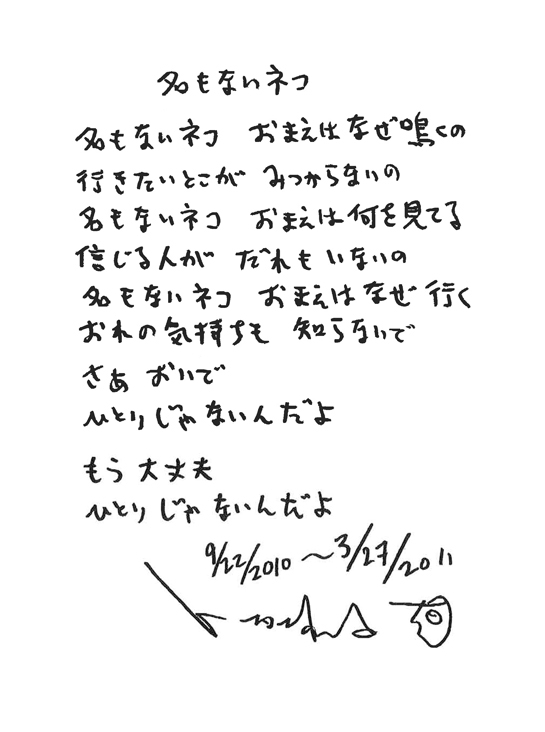 名もないネコ
名もないネコ おまえはなぜ鳴くの
行きたいとこが みつからないの
名もないネコ おまえは何を見てる
信じる人が だれもいないの
名もないネコ おまえはなぜ行く
おれの気持ちも 知らないで
さあ おいで
ひとりじゃないんだよ
もう 大丈夫
ひとりじゃないんだよ
9/22/2010 〜 3/27/2011